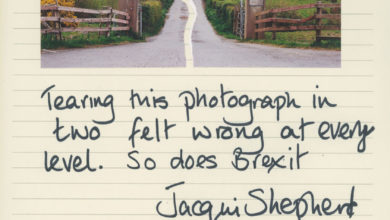 Tearing this photograph in
two felt wrong at every
level. So does Brexit
Jacqui Shepherd